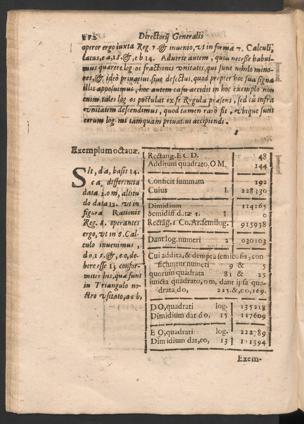 Directorij Generalis
operor ergo iuxta Reg. 7. & inuenio, vt in forma 7. Calculi,
latus, c a, 18. &, e b 14. Aduerte autem, quia necesse habui-
mus quærere log. os fractionis vnitatis, qui sunt nihilo mino-
res, &, ideò priuatiui siue defectus, quod propter hoc
illis apposuimus, hoc autem casu accidit in hoc exemplo non
enim tales log. os postulat ex se Regula præsens, sed
vnitatem descendimus, quod tamen rarò fit, vbique sunt
verum log. mi tamquam priuatiui accipiendi.
Exemplum octauæ.
Sit, d a, basis 14.
c a, differentia
data i, o m, altitu
do data 12. vt in
figura Rationis
Reg. 4. operantes
ergo, vt in 8. Cal-
culo inuenimus,
de-
bere esse 15 confor-
miter ijs, quæ sunt
in Triangulo no-
stro vsitato, a e b,
Rectang. E C D. 48
Additum quadrato, O M, 144
Conficit summam 192
Cuius l. 228330
Dimidium 114165
Semidiff. datæ 1. 0
Rectang. s Co. Ardens log. 915938
Dant log. numeri 2 030103
Cui addita, & dempta semidiff., con-
ficiuntur numeri 9 & 5
quorum quadrata 81 & 25
iuncta quadrato, o m, dant ipsa qua-
drata, d o, 225. &, e o, 169.
D O, quadrati log. 235218
Dimidium dat d o, 15 117609
E O, quadrati log. 222789
Dimidium dat, e o, 13 111394
Exem-